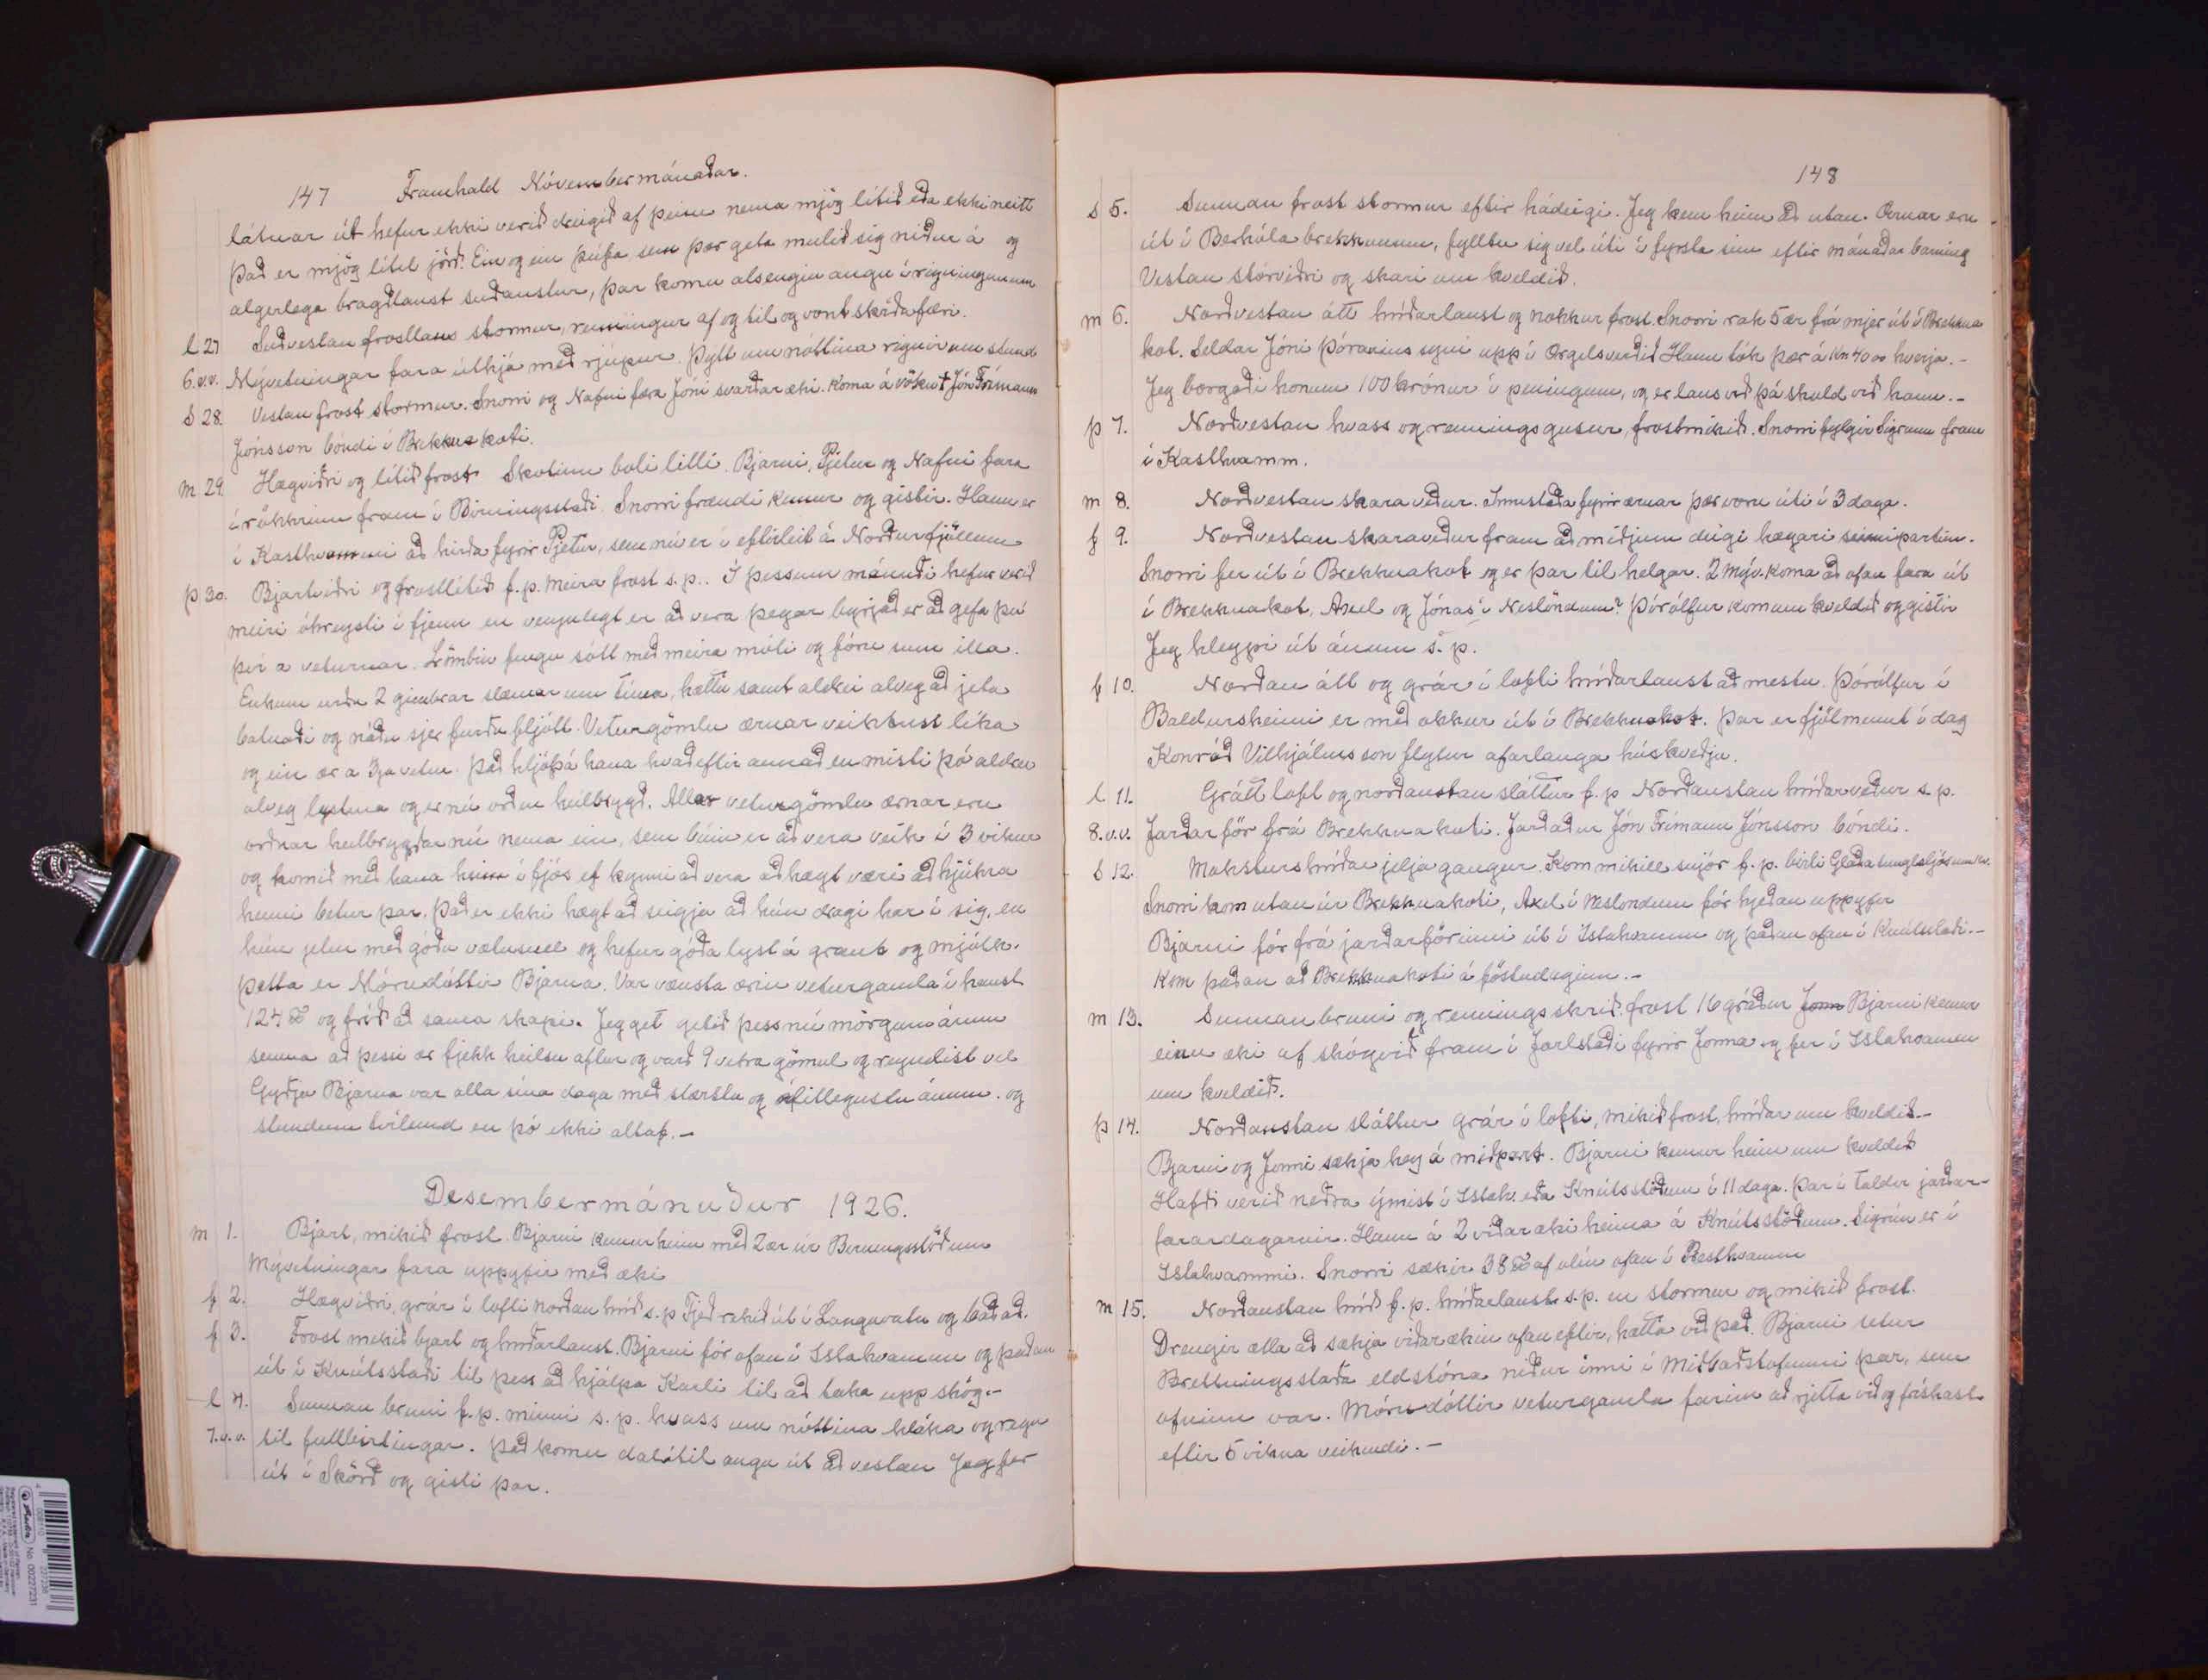 147 Framhald Nóvembermánaðar.
látnar út hefur ekki verið dregið af þeim nema mjög lítið eða ekki neitt
Það er mjög lítil jörð. Ein og ein þúfa sem þær geta mulið sig niður á og
algerlega bragðlaust suðaustur, þar komu alsengin augu í rigningunum
l 27 Suðvestan frostlaus stormur, renningur af og til og vont skíðafæri.
6.v.v. Mývetningar fara úthjá með rjúpur. Þýtt um nóttina rignir um stund
S 28. Vestan frost stormur. Snorri og Nafni fara Jóni svarðaræki. Koma á vöku † Jón Frímann
Jónsson bóndi í Brekknakoti.
m 29. Hægviðri og lítið frost. Skotinn boli litli. Bjarni, Pjetur og Nafni fara
í rökkrinu fram í Birningsstaði. Snorri frændi kemur og gistir. Hann er
í Kasthvammi að hirða fyrir Pjetur, sem nú er í eftirleit á Norðurfjöllum
þ 30. Bjartviðri og frostlítið f.p. Meira frost s.p.. Í þessum mánuði hefur verið
meiri óhreysti í fjenu en venjulegt er að vera þegar byrjað er að gefa því
þur a veturnar. Lömbin fengu sótt með meira móti og fóru sum illa.
Einkum urðu 2 gimbrar slæmar um tíma, hættu samt aldrei alveg að jeta
batnaði og náðu sjer furðu fljótt. Veturgömlu ærnar veiktust líka
og ein ær a 3ja vetur. Það hljóp á hana hvað eftir annað en misti þó aldrei
alveg lystina og er nú orðin heilbrygð. Allar veturgömlu ærnar eru
orðnar heilbrygðar nú nema ein, sem búin er að vera veik í 3 vikur
og komið með hana heim í fjós ef kynni að vera að hægt væri að hjúkra
henni betur þar. Það er ekki hægt að seigja að hún dragi hor í sig, en
hún jetur með góðu vætusuel og hefur góða lyst á graut og mjólk.
Þetta er Mórudóttir Bjarna. Var vænsta ærin veturgamla í haust
124 ℔ og fríð að sama skapi. Jeg get getið þess nú mörgum árum
seinna að þessi ær fjekk heilsu aftur og varð 9 vetra gömul og reyndist vel
Gyðja Bjarna var alla sína daga með stærstu og álitlegustu ánum. og
stundum tvílemd en þó ekki altaf. –
Desembermánuður 1926.
m 1. Bjart, mikið frost. Bjarni kemur heim með 2 ær úr Birningsstöðum
Mývetningar fara uppyfir með æki
f 2. Hægviðri, grár í lofti norðan hríð s.p. Fjeð rakið út í Langavatn og baðað.
f 3. Frost mikið bjart og hríðarlaust. Bjarni fór ofan í Istahvamm og þaðan
út í Knútsstaði til þess að hjálpa Karli til að taka upp skóg. –
l 4. Sunnan bruni f.p. minni s.p. hvass um nóttina hláka og regn
7.v.v. til fullbirtingar. Það komu dálítil augu út að vestan Jeg fer
út í Skörð og gisti þar.
148
S 5. Sunnan frost stormur eftir hádegi. Jeg kem heim að utan. Ærnar eru
út í Berhólabrekkunum, fylltu sig vel úti í fyrsta sinn eftir mánaðar barning
Vestan stórviðri og skari um kveldið.
m 6. Norðvestan átt hríðarlaust og nokkur frost. Snorri rak 5 ær frá mjer út í Brekkna
kot. Seldar Jóni Þórarinssyni upp í Orgelsverðið Hann tók þær á Kr 40 00 hverja. –
Jeg borgaði honum 100 krónur í peningum, og er laus við þá skuld við hann. –
þ 7. Norðvestan hvass og renningsgusur, frostmikið. Snorri fylgir Sigrúnu fram
í Kasthvamm.
m 8. Norðvestan skaraveður. Innistaða fyrir ærnar þær voru úti í 3 daga.
f 9. Norðvestan skaraveður fram að miðjum degi hægari seinnipartinn.
Snorri fer út í Brekknakot og er þar til helgar. 2 Mýv. koma að ofan fara út
í Brekknakot, Axel og Jónas í Neslöndum? Þórólfur kom um kveldið og gistir
Jeg hleypi út ánum s.p.
f 10. Norðan átt og grár í lofti hríðarlaust að mestu. Þórólfur í
Baldursheimi er með okkur út í Brekknakot. Þar er fjölmennt í dag
Konráð Vilhjálmsson flytur afarlanga húskveðju.
l 11. Grátt loft og norðaustan sláttur f.p. Norðaustan hríðarveður s.p.
8.v.v. Jarðarför frá Brekknakoti. Jarðaður Jón Frímann Jónsson bóndi.
S 12. Moksturshríðar jeljagangur. Kom mikill snjór f.p. birti Glaðatunglsljós um kv.
Snorri kom utan úr Brekknakoti, Axel í Neslöndum fór hjeðan uppyfir
Bjarni fór frá jarðarförinni út í Istahvamm og þaðan ofan í Knútsstaði. –
Kom þaðan að Brekknakoti á föstudaginn. –
m 13. Sunnan bruni og renningsskrið. frost 16 gráður Bjarni kemur
einu æki af skógvið fram í Jarlstaði fyrir Jonna og fer í Istahvamm
um kveldið.
þ 14. Norðaustan sláttur grár í lofti, mikið frost, hríðar um kveldið –
Bjarni og Jonni sækja hey á miðpart. Bjarni kemur heim um kveldið
Hafði verið neðra ýmist í Istahv. eða Knútsstöðum í 11 daga. Þar í taldir jarðar-
farardagarnir. Hann á 2 viðaræki heima á Knútsstöðum. Sigrún er í
Istahvammi. Snorri sækir 38 ℔ af olíu ofan í Presthvamm
m 15. Norðaustan hríð f.p. hríðarlaust s.p. en stormur og mikið frost.
Drengir ætla að sækja viðarækin ofan eftir, hætta við það. Bjarni setur
Brettningsstaða eldstóna niður inni í Miðbaðstofunni þar, sem
ofninn var. Mórudóttir veturgamla farin að rjetta við og frískast
eftir 5 vikna veikindi. –